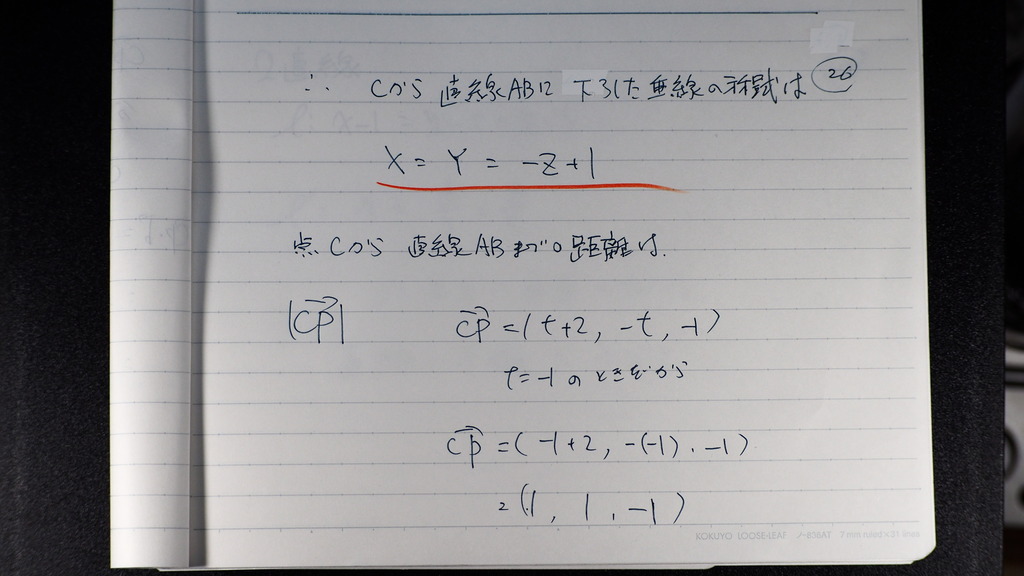 ∴ Cから 直線ABに 下ろした垂線の方程式は 26
X = Y = -Z+1
点Cから 直線ABまでの距離は.
|CP→| CP→ = (t+2, -t, -1)
t=-1のときだから
CP→ = (-1+2, -(-1), -1)
= (1, 1, -1)
KOKUYO LOOSE-LEAF ノ-836AT 7 mm ruled×31 lines